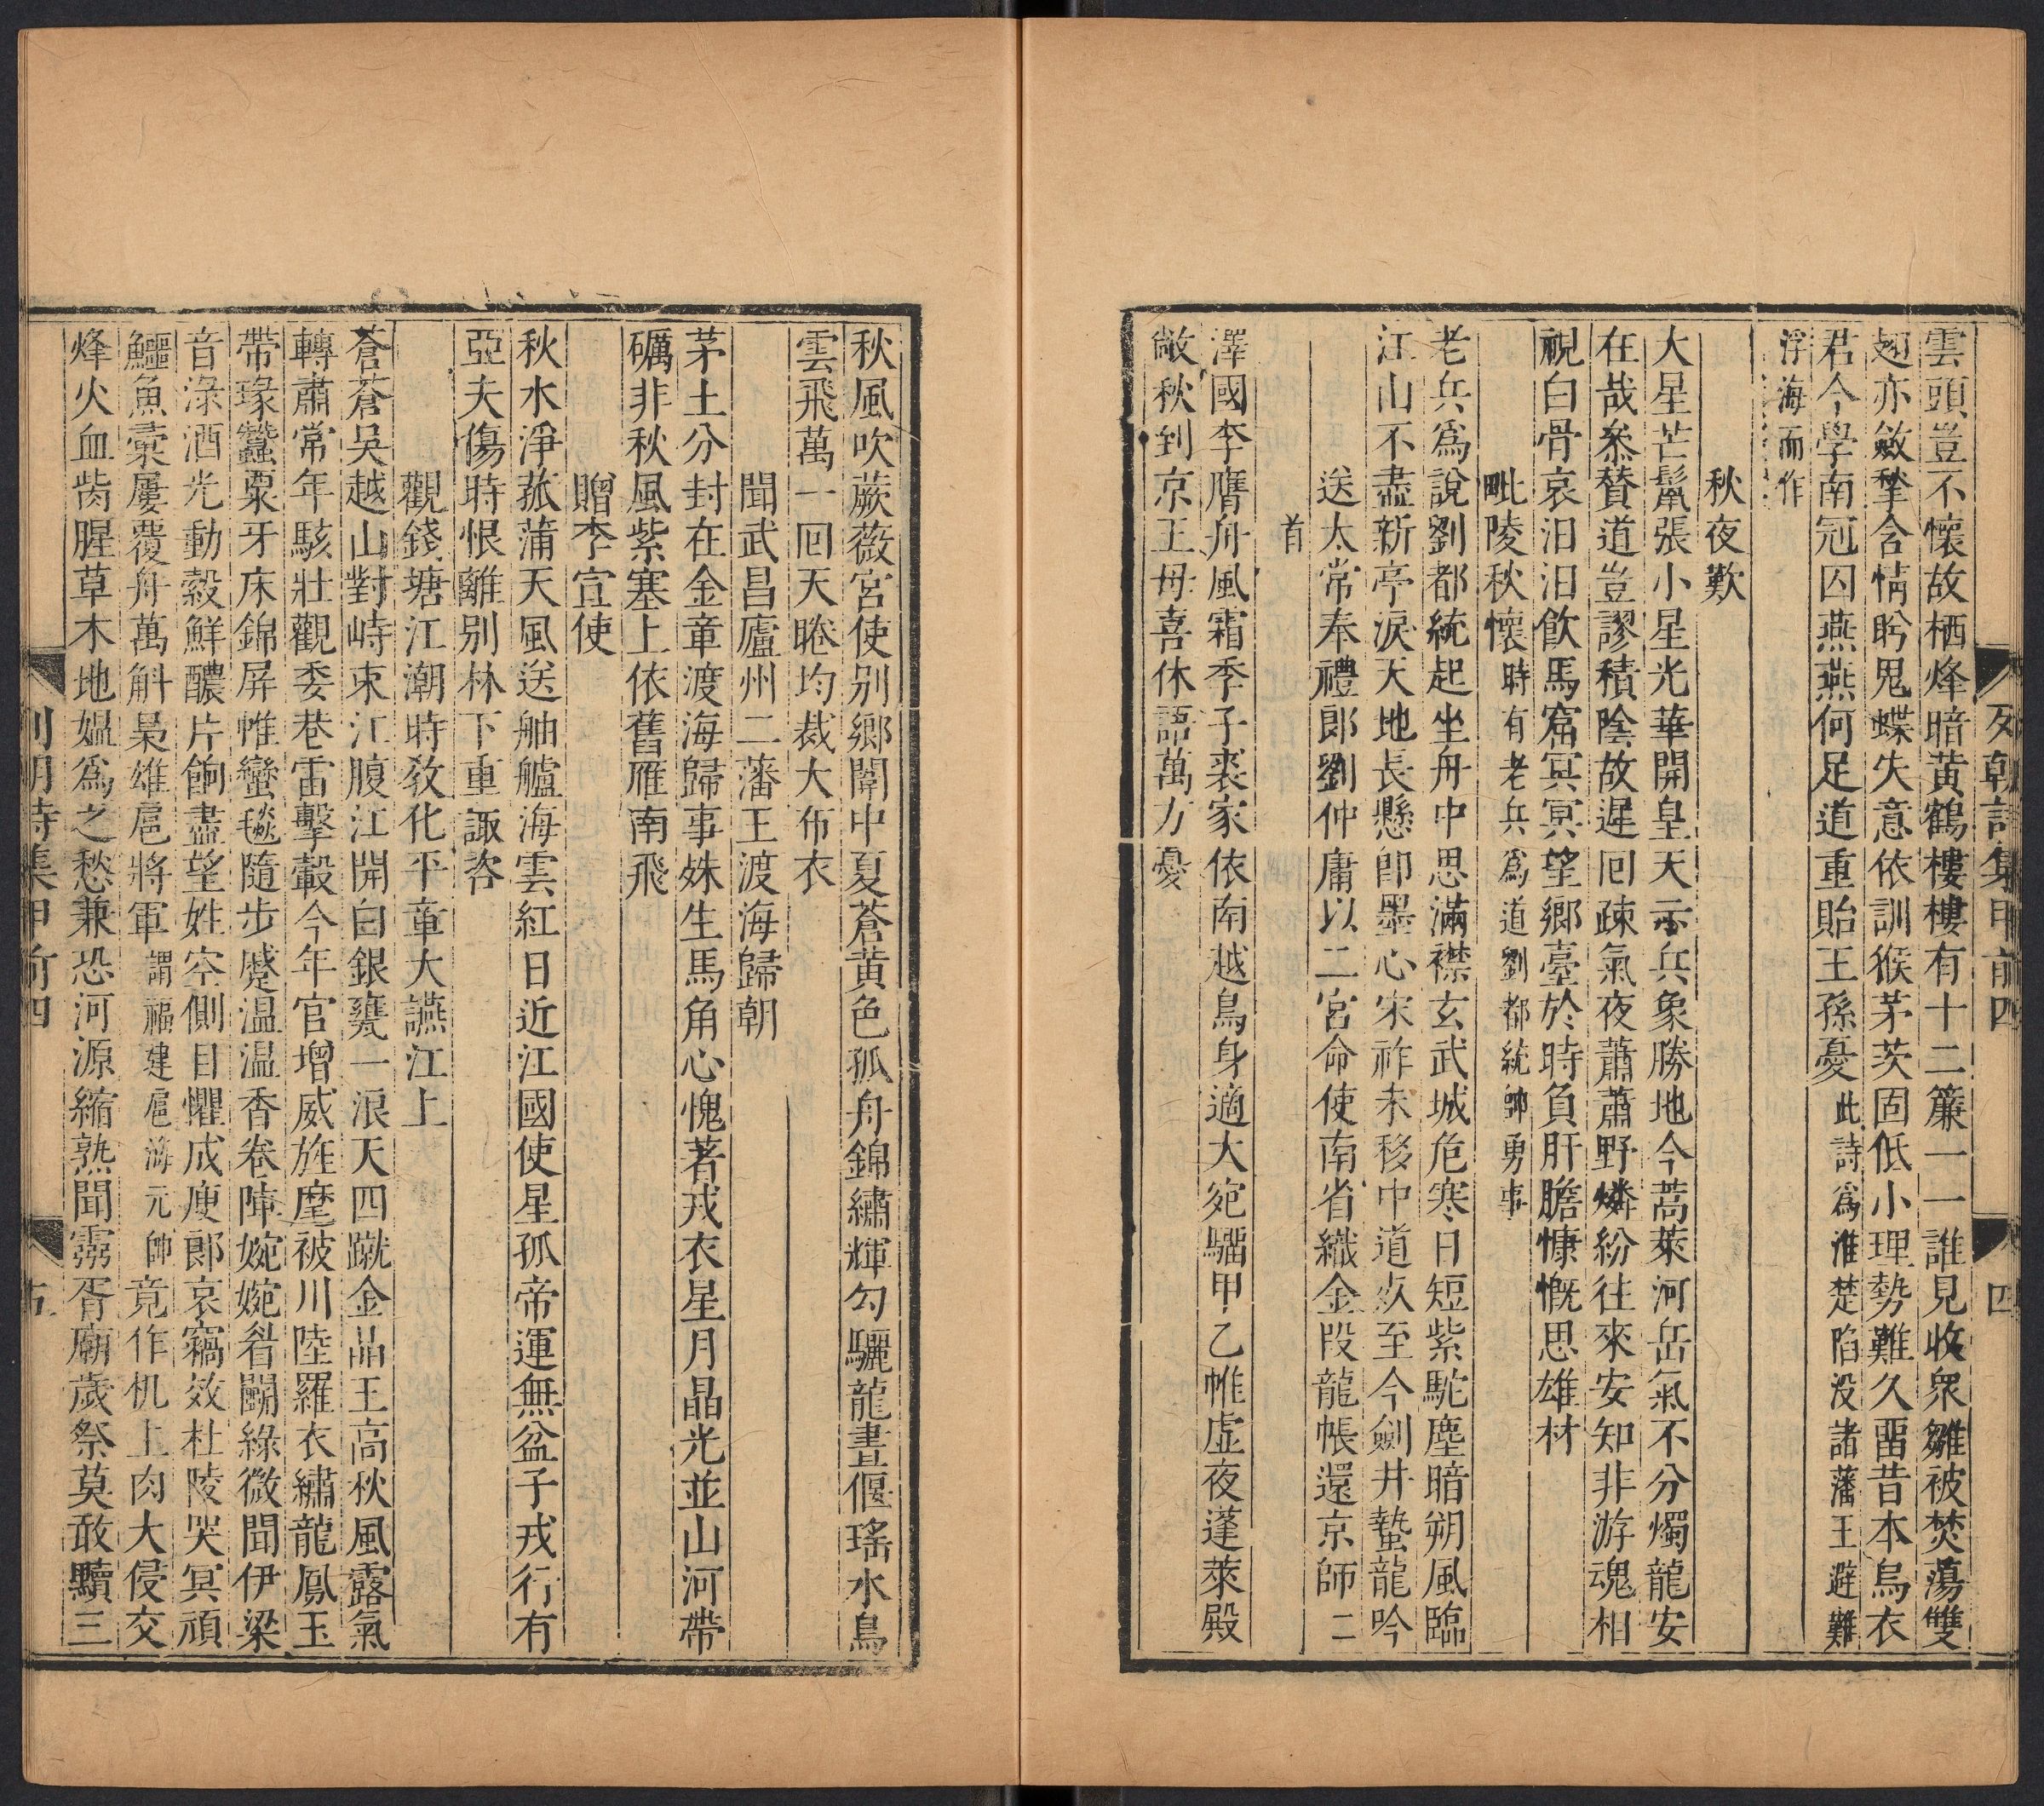 列朝詩集甲前四
四
雲頭豈不懷故栖烽暗黄鶴樓樓有十二簾一一誰見收衆雛被焚蕩雙
翅亦斂拳含情盻鬼蝶失意依訓猴茅茨固低小理勢難久畱昔本烏衣
君今學南冠囚燕燕何足道重貽王孫憂此詩爲淮楚陷没諸藩王避難
浮海而作
秋夜歎
大星芒鬛張小星光華開皇天示兵象勝地今蒿萊河岳氣不分燭龍安
在哉叅賛道豈謬積陰故遲囘疎氣夜蕭蕭野燐紛往來安知非游魂相
視白骨哀汨汨飲馬窟冥冥望鄉臺於時負肝膽慷慨思雄材
毗陵秋懷時有老兵爲道劉都統帥勇事
老兵爲說劉都統起坐舟中思滿襟玄武城危寒日短紫駝塵暗朔風臨
江山不盡新亭淚天地長懸卽墨心宋祚未移中道夊至今劍井蟄龍吟
送太常奉禮郎劉仲庸以二宮命使南省織金段龍帳還京師二
首
澤國李膺舟風霜季子裘家依南越鳥身適大宛騮甲乙帷虚夜蓬萊殿
敞秋到京王母喜休語萬方憂
秋風吹蕨薇宮使别鄉闈中夏蒼黄色孤舟錦繡輝勾驪龍晝偃瑤水鳥
雲飛萬一囘天睠均裁大布衣
聞武昌廬州二藩王渡海歸朝
茅土分封在金章渡海歸事姝生馬角心愧著戎衣星月晶光並山河帶
礪非秋風紫塞上依舊雁南飛
贈李宣使
秋水淨菰蒲天風送舳艫海雲紅日近江國使星孤帝運無盆子戎行有
亞夫傷時恨離别林下重諏咨
觀錢塘江潮時敎化平章大讌江上
蒼蒼吳越山對峙束江腹江開白銀甕一浪天四蹴金晶王高秋風露氣
轉肅常年駭壯觀委巷雷擊轂今年官增威旌麾被川陸羅衣繡龍鳳玉
帶瑑蠶粟牙床錦屏帷蠻毯隨步蹙温温香卷陣婉婉眥鬭綠微聞伊梁
音渌酒光動縠鮮醲片餉盡望姓空側目懼成庾郎哀竊效杜陵哭冥頑
鱷魚橐屢覆舟萬斛梟雄扈將軍謂福建扈海元帥竟作机上肉大侵交
烽火血歲腥草木地媪爲之愁兼恐河源縮熟聞靈胥廟歲祭莫敢黷三
列朝詩集甲前四
五